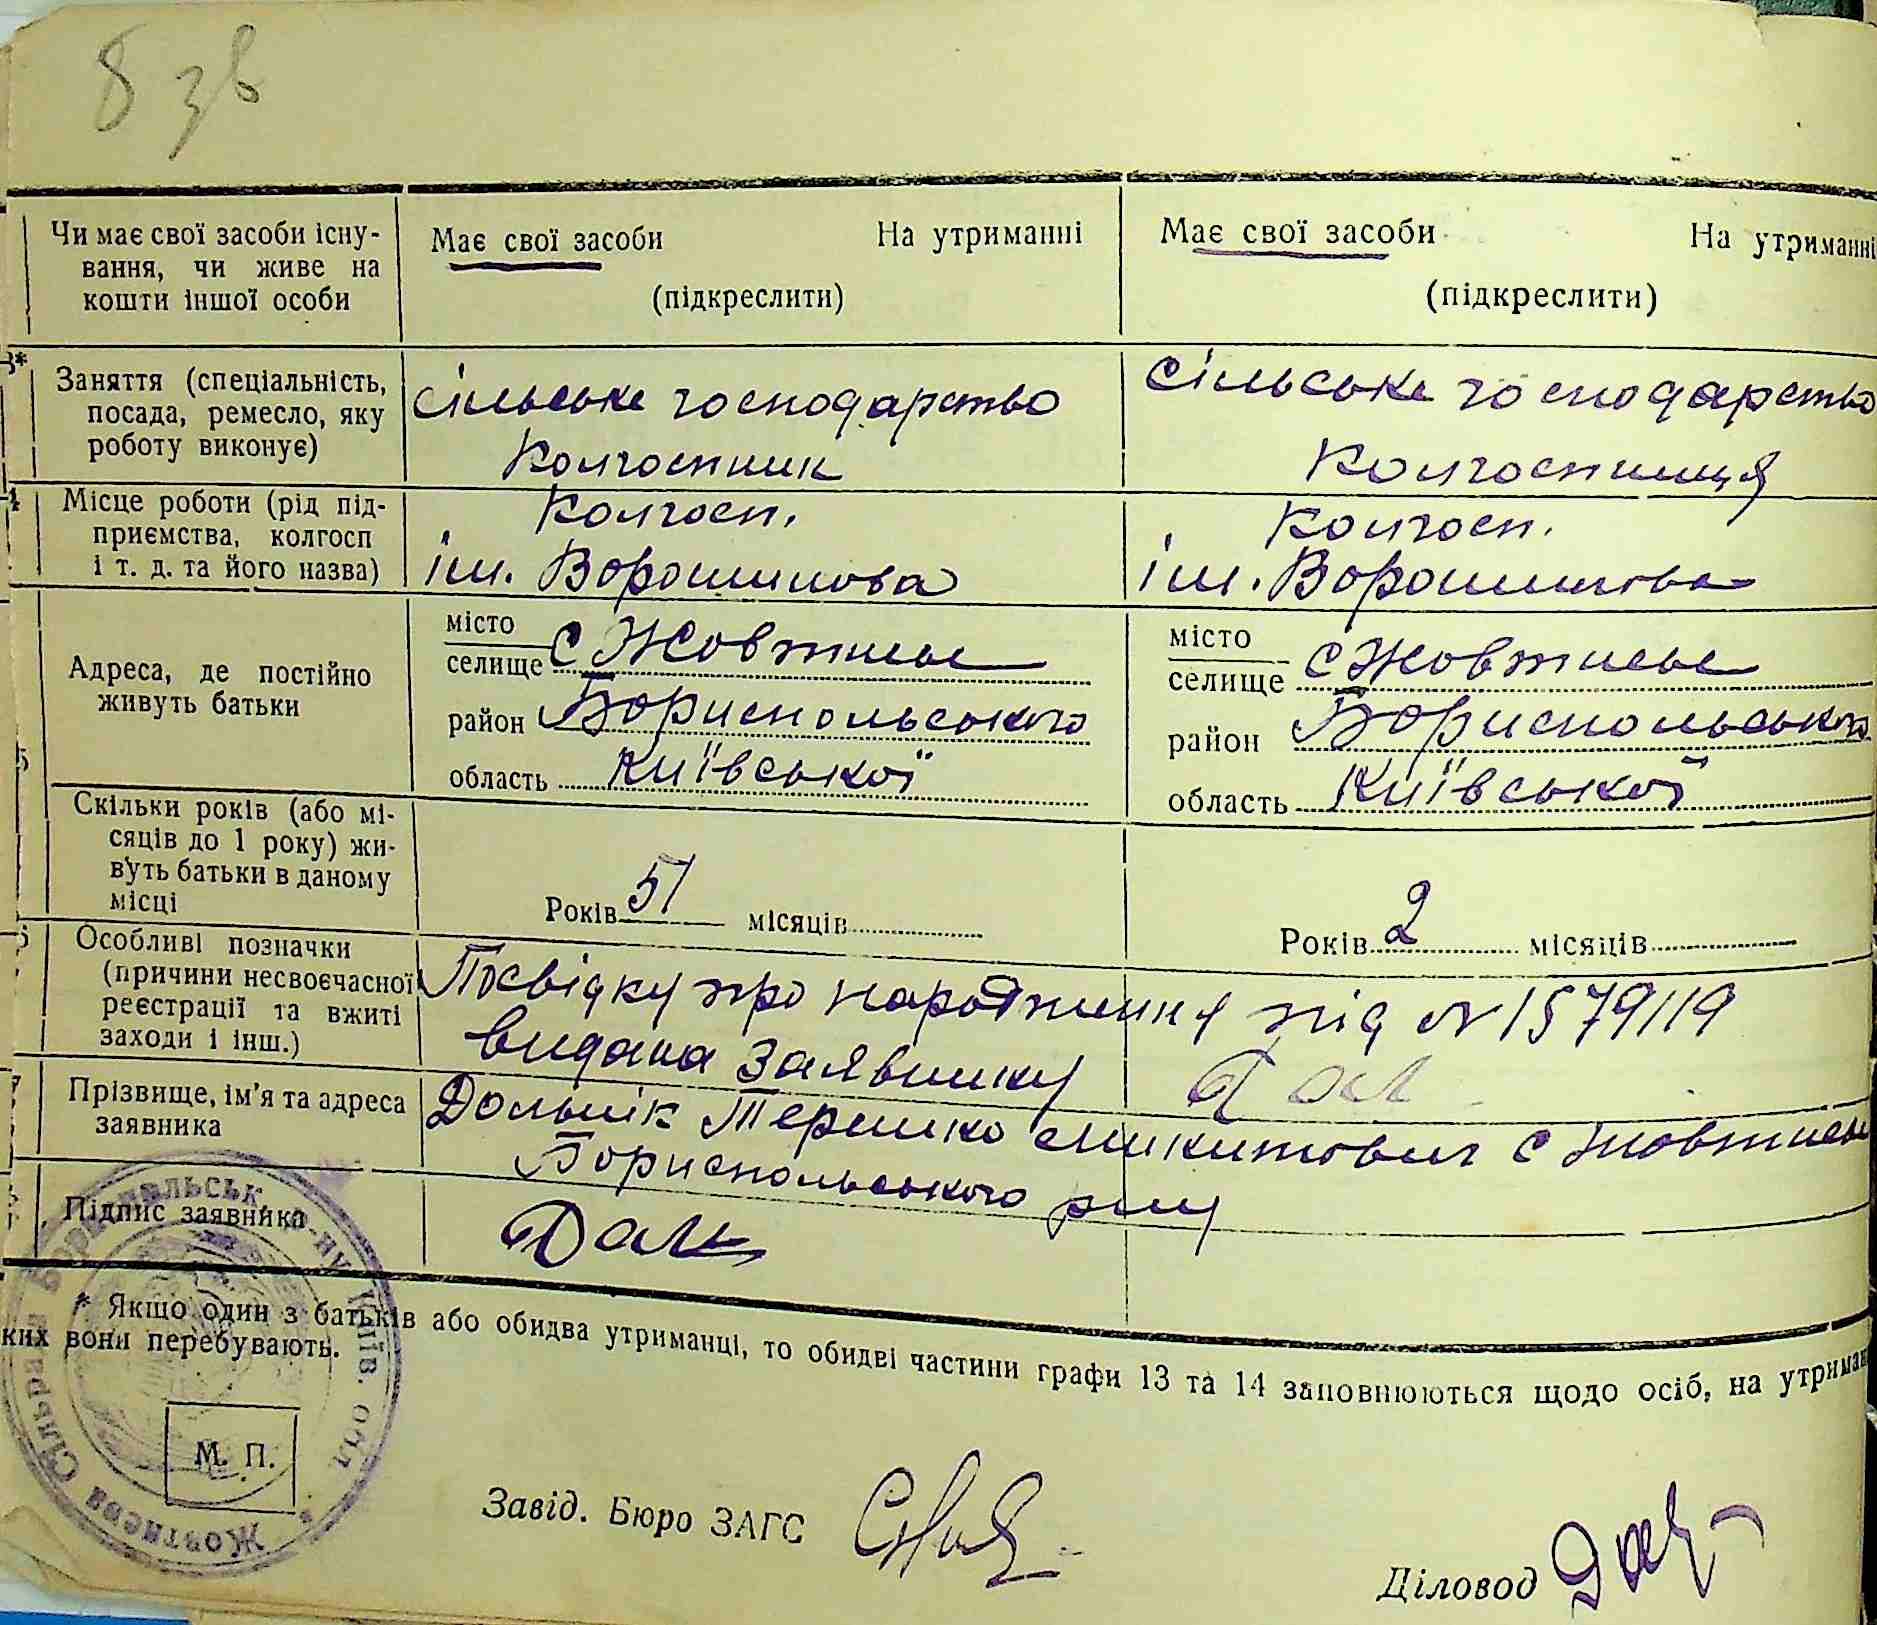 8 зв
Чи має свої засоби існу-
вання, чи живе на
кошти іншої особи
Має свої засоби На утриманні
(підкреслити)
Має свої засоби На утриманні
(підкреслити)
3*
Заняття (спеціальність,
посада, ремесло, яку
роботу виконує)
Сільське господарство
Колгоспник
Сільське господарство
Колгоспниця
4
Місце роботи (рід під-
приємства, колгосп
і т. д. та його назва)
Колгосп.
ім. Ворошилова
Колгосп.
ім. Ворошилова
5
Адреса, де постійно
живуть батьки
місто
селище с Жовтневе
район Бориспольського
область Київської
місто
селище с Жовтневе
район Бориспольського
область Київської
Скільки років (або мі-
сяців до 1 року) жи-
вуть батьки в даному
місці
Років 51 місяців
Років 2 місяців
6
Особливі позначки
(причини несвоєчасної
реєстрації та вжиті
заходи і інш.)
Посвідку про народження під № 1579119
видана заявнику
7
Прізвище, ім'я та адреса
заявника
Дольнік Терешко Микитович с Жовтневе
Бориспольського р-ну
Підпис заявника
Дол
* Якщо один з батьків або обидва утриманці, то обидві частини графи 13 та 14 заповнюються щодо осіб, на утриман
ких вони перебувають.
М. П.
Жовтнева Сільрада Бориспольськ. р-ну Київ. обл
Завід. Бюро ЗАГС
Діловод